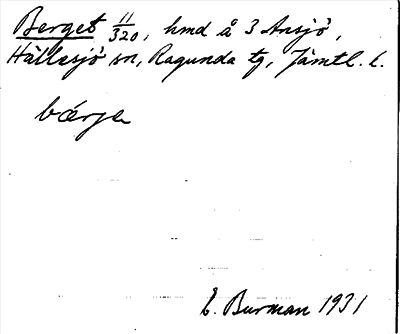 Berget 11/320, hmd å 3 Ansjö,
Hällesjö sn, Ragunda tg, Jämtl. l.
bærje
E. Burman 1931